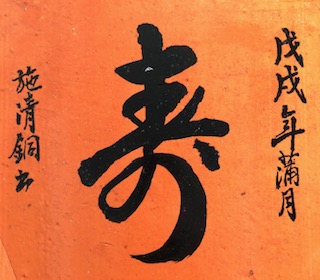 戊戌年蒲月
寿
施清銅书